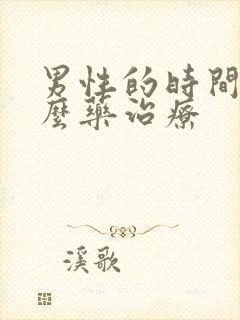 男性的時間
麼藥治療
溪歌